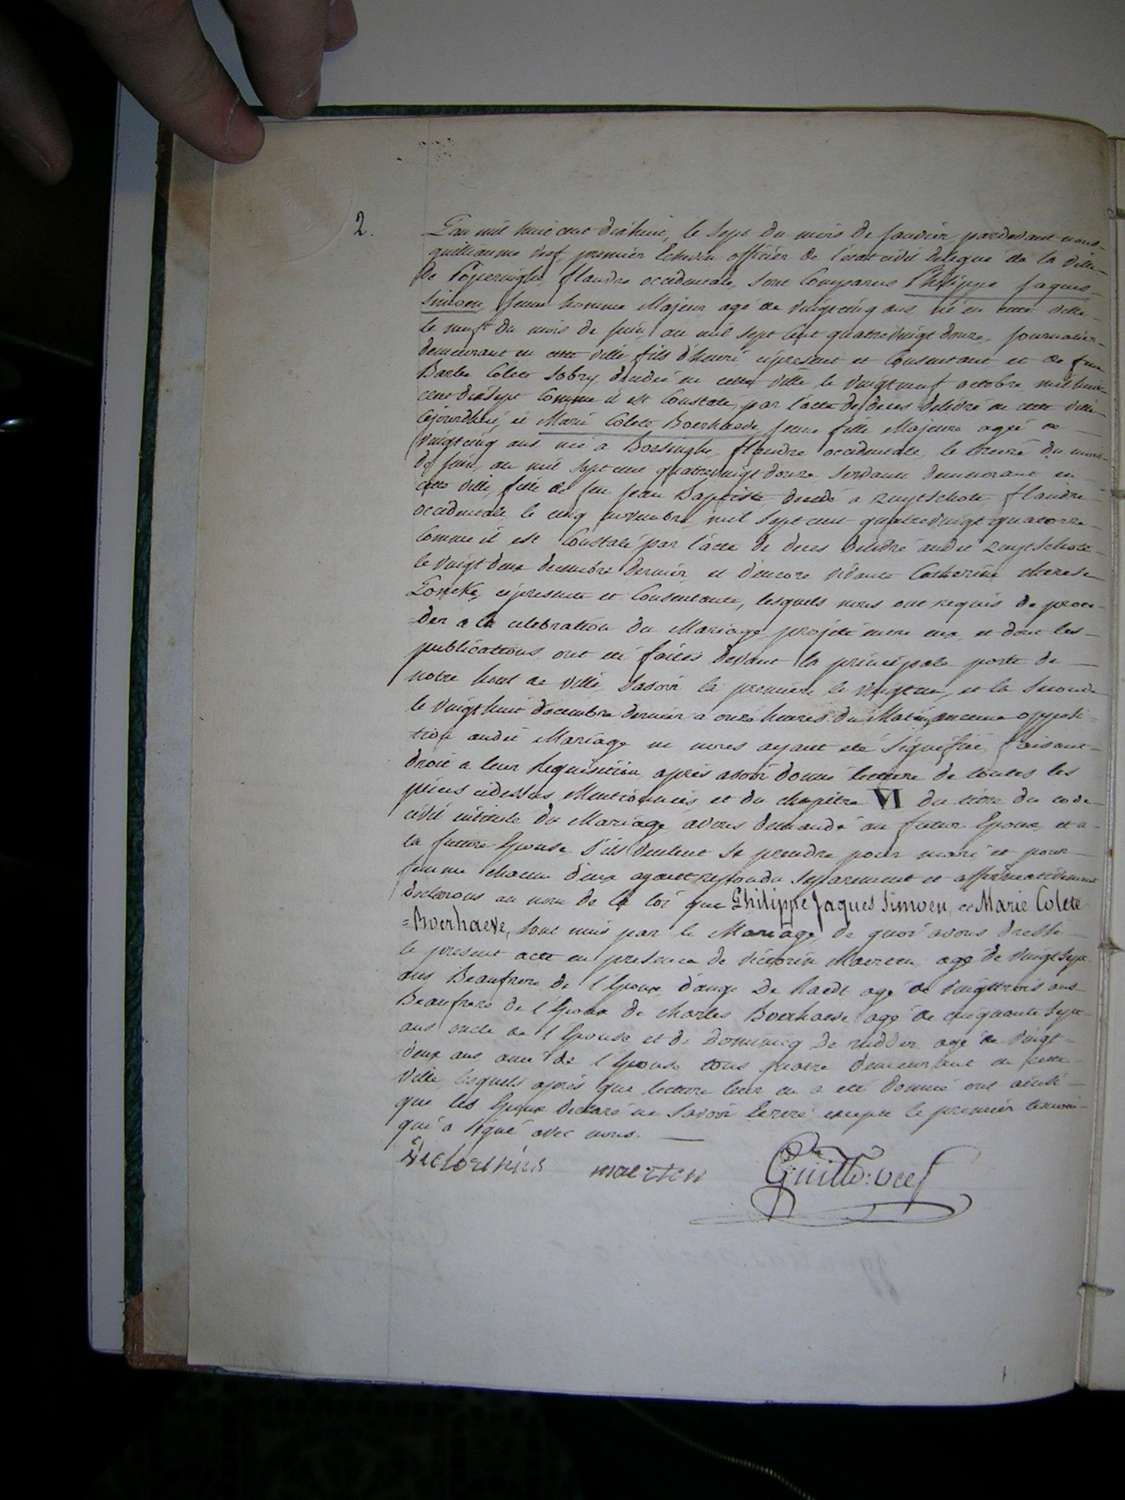 2.
L'an mil huit cent dixhuit, le sept du mois de Janvier pardevant nous
guilliaume veef premier Echevin officier de l'etat civil delegué de la ville
de Poperinghe, flandre occidentale, sont Comparus Philippe Jaques
Simoen, Jeune homme Majeur agé de vingtcinq ans né en cette ville
le neuf du mois de juin, an mil sept cent quatrevingt douze, Journalier
demeurant en cette ville fils d'henri ci present et Consentant et de feue
Barbe Colete Sobry decedée en cette ville le vingtneuf octobre mil huit
cent dixsept Comme il est Constaté par l'acte de deces delivré en cette ville
cejourdhui, et Marie Colete Boerhaeve Jeune fille Majeure agée de
vingtcinq ans née a Boesinghe, flandre occidentale, le treize du mois
de juin, an mil sept cent quatrevingt douze servante demeurant en
cette ville, fille de feu Jean Baptiste decedé a Zuytschote flandre
occidentale le cinq novembre mil sept cent quatrevingt quatorze
Comme il est Constaté par l'acte de deces delivré audit Zuytschote
le vingt deux decembre dernier, et d'encore vivante Catherine therese
ci presente et Consentante, lesquels nous ont requis de proce-
der a la celebration du Mariage projeté entre eux et dont les
publications ont été faites devant la principale porte de
notre hotel de ville, Savoir la premiere le vingt un, et la seconde
le vingt huit décembre dernier a onze heures du Matin, aucune opposi-
tion audit Mariage ne nous ayant eté Signifiée, faisant
droit a leur Requisition, après avoir donné lecture de toutes les
pièces cidessus Mentionnées, et du chapitre VI du titre du code
civil intitulé du Mariage avons demandé au futur Epoux et a
la future Epouse s'ils veulent se prendre pour mari et pour
femme chacun d'eux ayant repondu Separement et affirmativement
declarons au nom de la loi que Philippe Jaques Simoen, et Marie Colete
=Boerhaeve, sont unis par le Mariage, de quoi avons dressé
le present acte en presence de Victorin Maerten agé de vingt sept
ans Beaufrere de l'Epoux, d'ange De haedt agé de vingttrois ans
Beaufrere de l'Epoux de Charles Boerhaeve agé de cinquante sept
ans oncle de l'Epouse et de Dominicq De rudder agé de vingt
deux ans ami de l'Epouse tous quatre demeurant en cette
ville lesquels après que lecture leur en a eté donnée ont ainsi
que les Epoux declaré ne savoir Ecrire excepté le premier temoin
qui a signé avec nous.
Victorinus maerten Guille: veef